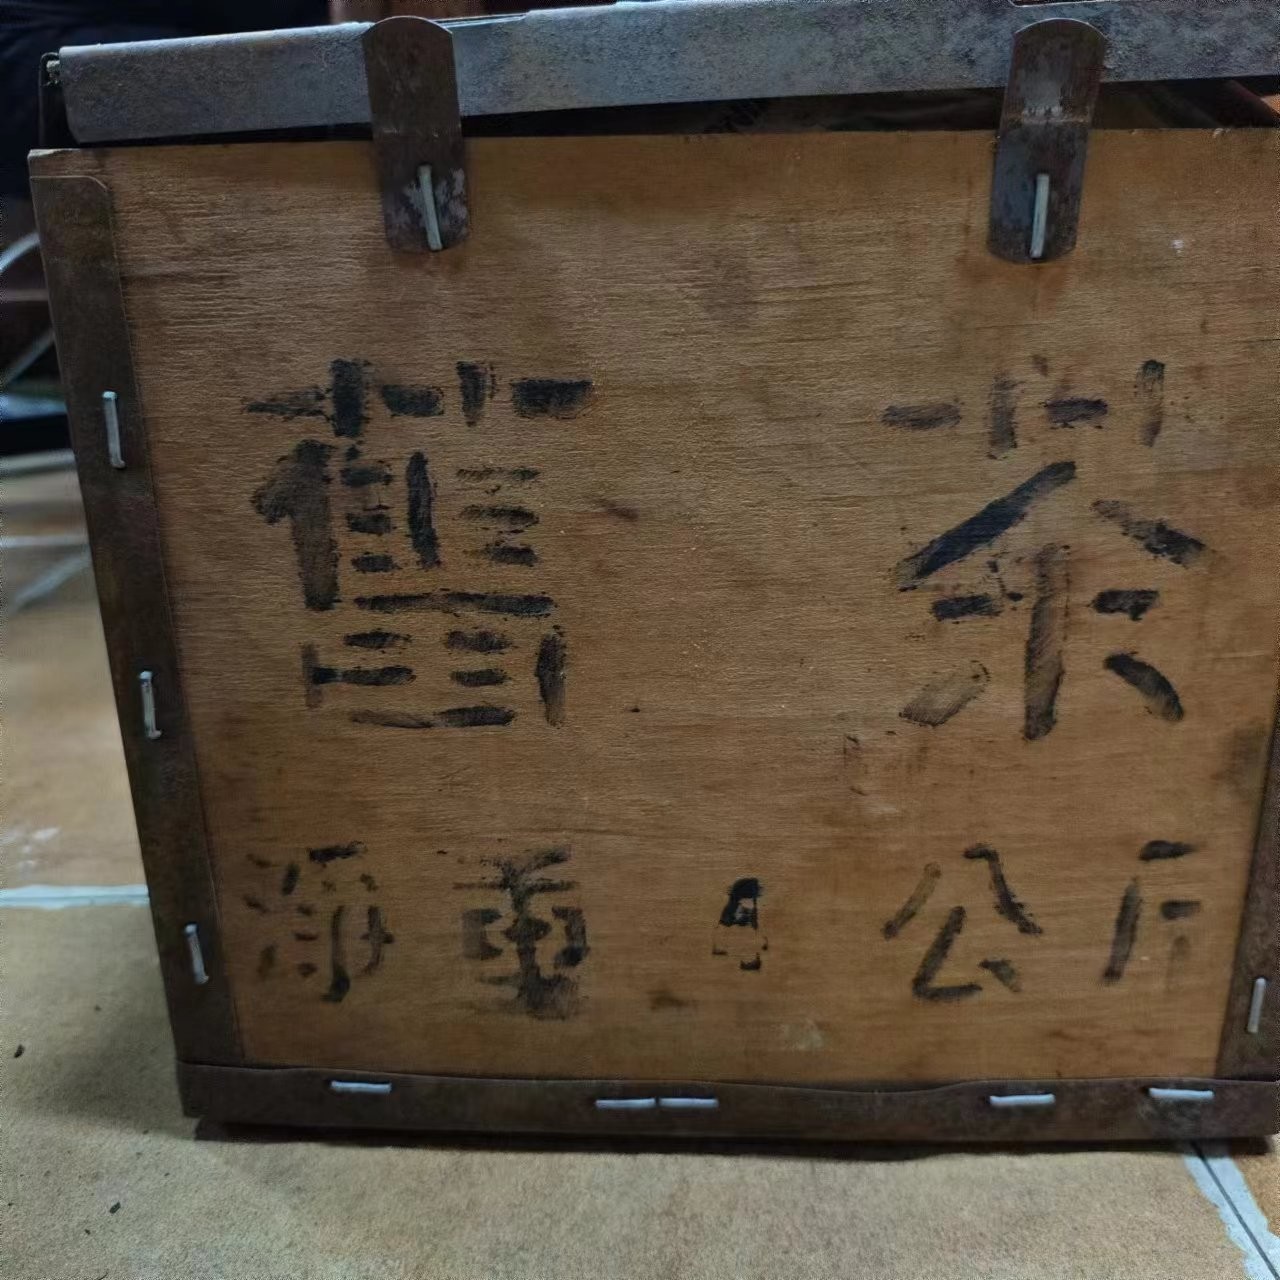 舊 茶
淨重 8 公斤